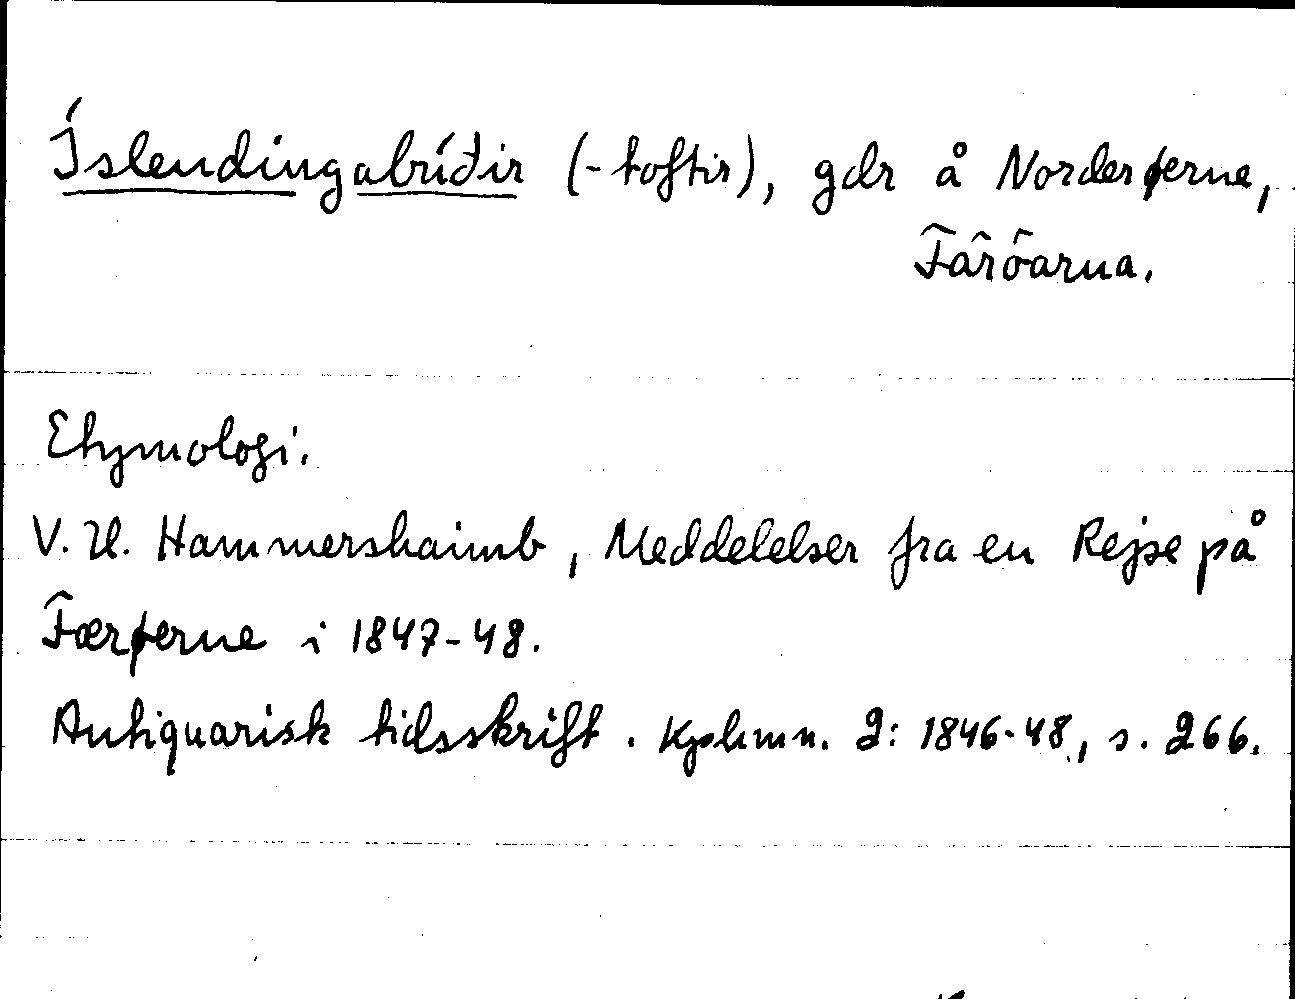 Íslendingabúðir (-toftir), gdr å Norderøerne,
Färöarna.
Etymologi.
V. U. Hammershaimb, Meddelelser fra en Rejse på
Færøerne i 1847-48.
Antiquarisk tidsskrift. Kphmn. 2: 1846-48, s. 266.